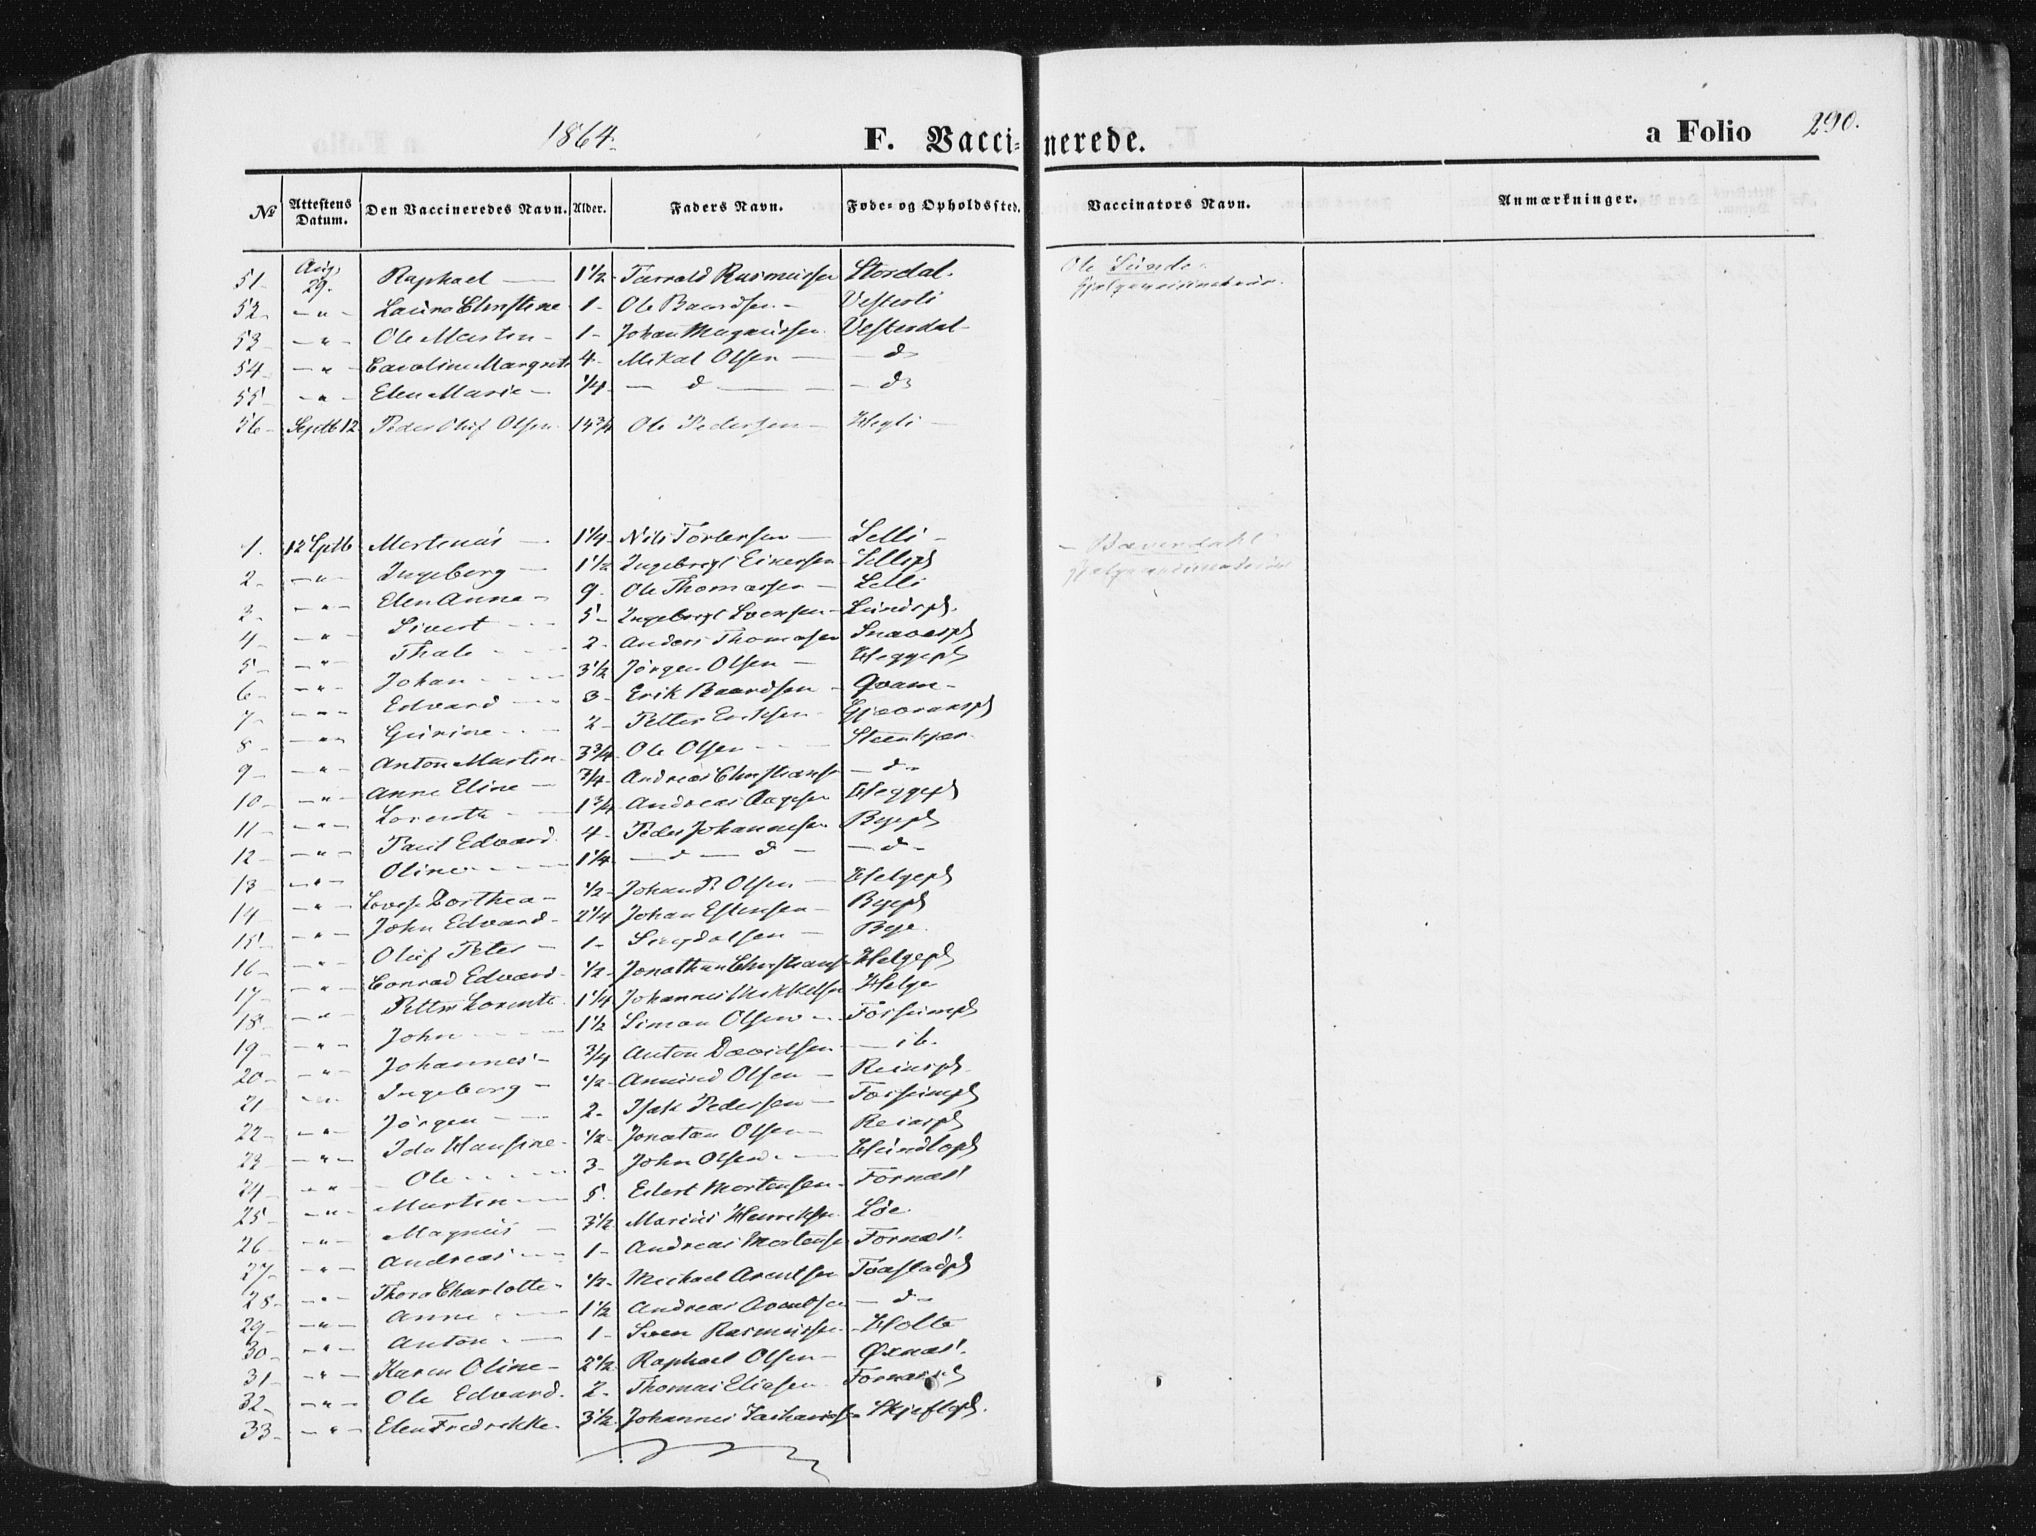 1864. F. Vaccinerede. a Folio 290.
№ Attestens Datum. Den Vaccineredes Navn. Alder. Faders Navn. Føde- og Opholdssted. Vaccinators Navn. Anmærkninger.
51. Aug. 29. Raphael — 1 1/2 - Rasmussen Stordal. Ole Lunde
52 - " - Laura Christine 1 - Ole Baardsen - Vesterli
53 - " - Ole Martin - 1 - Johan Magnussen Vesterdal
54 - " - Caroline Margrete 4 - Mikal Olsen — d
55 - " - Elen Marie - 1/4 - — d — — do
56 - Septb 12 Peder Oluf Olsen 14 3/4 Ole Pedersen - Hegli —
1. 12 Sptb Martinus — 1 1/4 - Nils Torbersen — Lelli -
2 - " - Ingeborg — 1 1/2 Ingebrigt Einersen Lellipl
2 - " - Elen Anne - 9. Ole Thomassen — Lelli
4 - " - Sivert - - 5 - Ingebrigt Svensen - Lundspl.
5 - " - Thale - - 2 - Anders Thomasen
6 - " - Johan - - 3 1/2 Jørgen Olsen — Heggepl
7 - " - Edvard - - 3 - Erik Baardsen - Qvam -
8 - " - Gurine - - 2 - Petter Eriksen
9 - " - Anton Martin - 3 3/4 - Ole Olsen - - Steenkjær.
10 - " - Anne Eline — 3/4 - Andreas Christians — d -
11 - " - Lorents - 1 3/4 Andreas Aagesen Heggepl
12 - " - Paul Edvard 4 - Peder Johannesen Byepl
13 - " - Oline - - 1 1/4 — d — d — — d -
14 - " - Dorthea - 1/2 - Johan P. Olsen — Helgepl
15 - " - John Edvard - 2 1/4 Johan Estensen — Byepl
16 - " - Oluf Peter - 1 - — Bye.
17 - " - Conrad Edvard - 1/2 - Jonathan Christians Helgepl
18 - " - Petter Lorents 1 1/4 Johannes Mikkelsen Helge
19 - " - John - - 1 1/2 Simon Olsen - - Forsempl
20 - " - Johannes - 3/4 Anton Davidsen — ib.
21 - " - Ingeborg - 1/2 - Amund Olsen — Reinspl.
22 - " - Jørgen — 2 - Isak Pedersen — Forsempl
23 - " - Ida Hansine - 1/2 - Jonatan Olsen — Reinspl
24 - " - Ole - - 3 - John Olsen - - Hundlopl
25 - " - Martin — 5. Edert Mortensen - Fornæs!
26 - " - Magnus — 3 1/2 Marius Henriksen Løe.
27 - " - Andreas - - 1 - Andreas Mortensen Fornæs!
28 - " - Thora Charlotte - 1/2 - Michael Arentsen
29 - " - Anne - — 1 1/2 Andreas Arentsen — d -
30 - " - Anton - — 1 - Sven Rasmussen - Holte
31 - " - Karen Oline - 2 1/2 Raphael Olsen — Øxnæs!
32 - " - Ole Edvard. 2 - Thomas Eliasen Fornæspl
33 - " - Elen Fredrikke - 3 1/2 Johannes Skjeflopl.